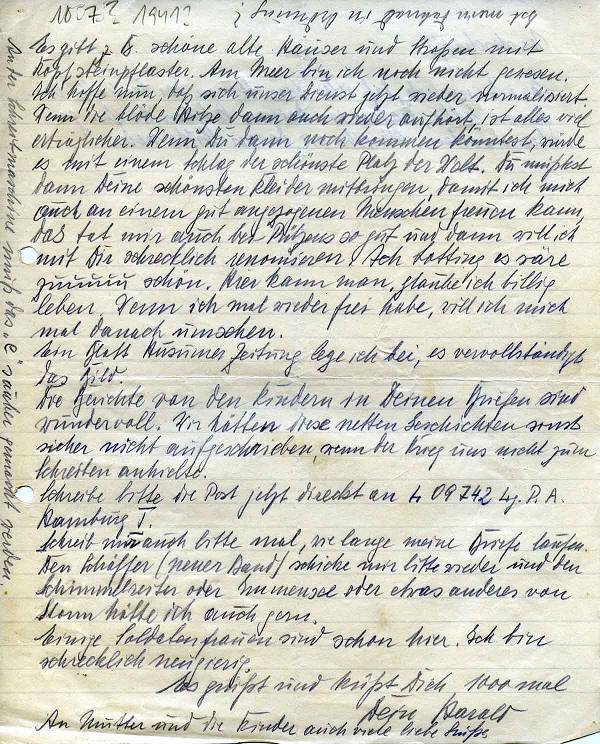 10073 1941?
Es gibt z. B. schöne alte Häuser und Straßen mit
Kopfsteinpflaster. Am Meer bin ich noch nicht gewesen.
Ich hoffe nun, daß sich unser Dienst jetzt wieder normalisiert.
Wenn die blöde Hitze dann auch wieder aufhört, ist alles viel
erträglicher. Wenn Du dann noch kommen könntest, würde
es mit einem Schlag der schönste Platz der Welt. Du müßtest
dann Deine schönsten Kleider mitbringen, damit ich mich
auch an einem gut angezogenen Menschen freuen kann,
das tat mir auch bei so gut und dann will ich
mit Dir schrecklich renomieren. Ach es wäre
schön. Hier kann man, glaube ich billig
leben. Wenn ich mal wieder frei habe, will ich mich
mal danach umsehen.
Ein Blatt Husumer Zeitung lege ich bei, es vervollständigt
das Bild.
Die Berichte von den Kindern in Deinen Briefen sind
wundervoll. Wir hätten diese netten Geschichten sonst
sicher nicht aufgeschrieben, wenn der Krieg uns nicht zum
Schreiben anhielte.
Schreibe bitte die Post jetzt direckt an L 09742 Lg. P. A.
Hamburg 1.
Schreib mir auch bitte mal, wie lange meine Briefe laufen.
Den Schäffer (neuer Band) schicke mir bitte wieder und den
Schimmelreiter oder Immensee oder etwas anderes von
Storm hätte ich auch gern.
Einige Soldatenfrauen sind schon hier. Ich bin
schrecklich neugierig.
Es grüßt und küßt Dich 1000 mal
Dein Harald
An Mutter und die Kinder auch viele liebe Grüße
An der Schreibmaschine muß das "e" sauber gemacht werden.